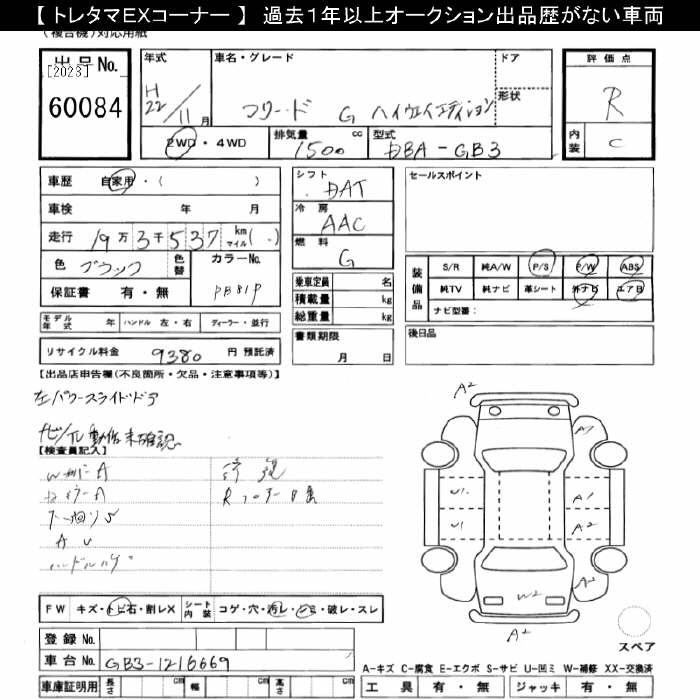 【 トレタマEXコーナー 】 過去1年以上オークション出品歴がない車両
(複合機)対応用紙
出品No.
[2023]
60084
年式
H22/11月
車名・グレード
フリード G ハイウェイエディション
ドア
形状
評価点
R
内装
C
2WD・4WD
排気量
1500 cc
型式
DBA-GB3
車歴 自家用・( )
車検 年 月
走行 19万3千537 km マイル( )
色 ブラック
色替
カラーNo.
PB81P
保証書 有・無
シフト
DAT
冷房
AAC
燃料
G
乗車定員 名
積載量 kg
総重量 kg
セールスポイント
装備品
S/R 純A/W P/S P/W ABS
純TV 純ナビ 革シート 外ナビ エアB
ナビ型番:
モデル年式 年 ハンドル 左・右 ディーラー・並行
書類期限
月 日
後日品
リサイクル料金 9380 円 預託済
【出品店申告欄(不良箇所・欠品・注意事項等)】
左パワースライドドア
ナビ/TV動作未確認
【検査員記入】
A
A
下廻りS
A U
ハンドルハゲ
R フロアー
A2
A1
U1
A1
U1
A2
W2
A2
A2
FW キズ・トビ石・割レX
シート内装 コゲ・穴・汚レ・シミ・破レ・スレ
スペア
登録No.
車台No. GB3-1216669
A-キズ C-腐食 E-エクボ S-サビ U-凹ミ W-補修 XX-交換済
車庫証明用 長さ cm 幅 cm 高さ cm
工具 有・無 ジャッキ 有・無